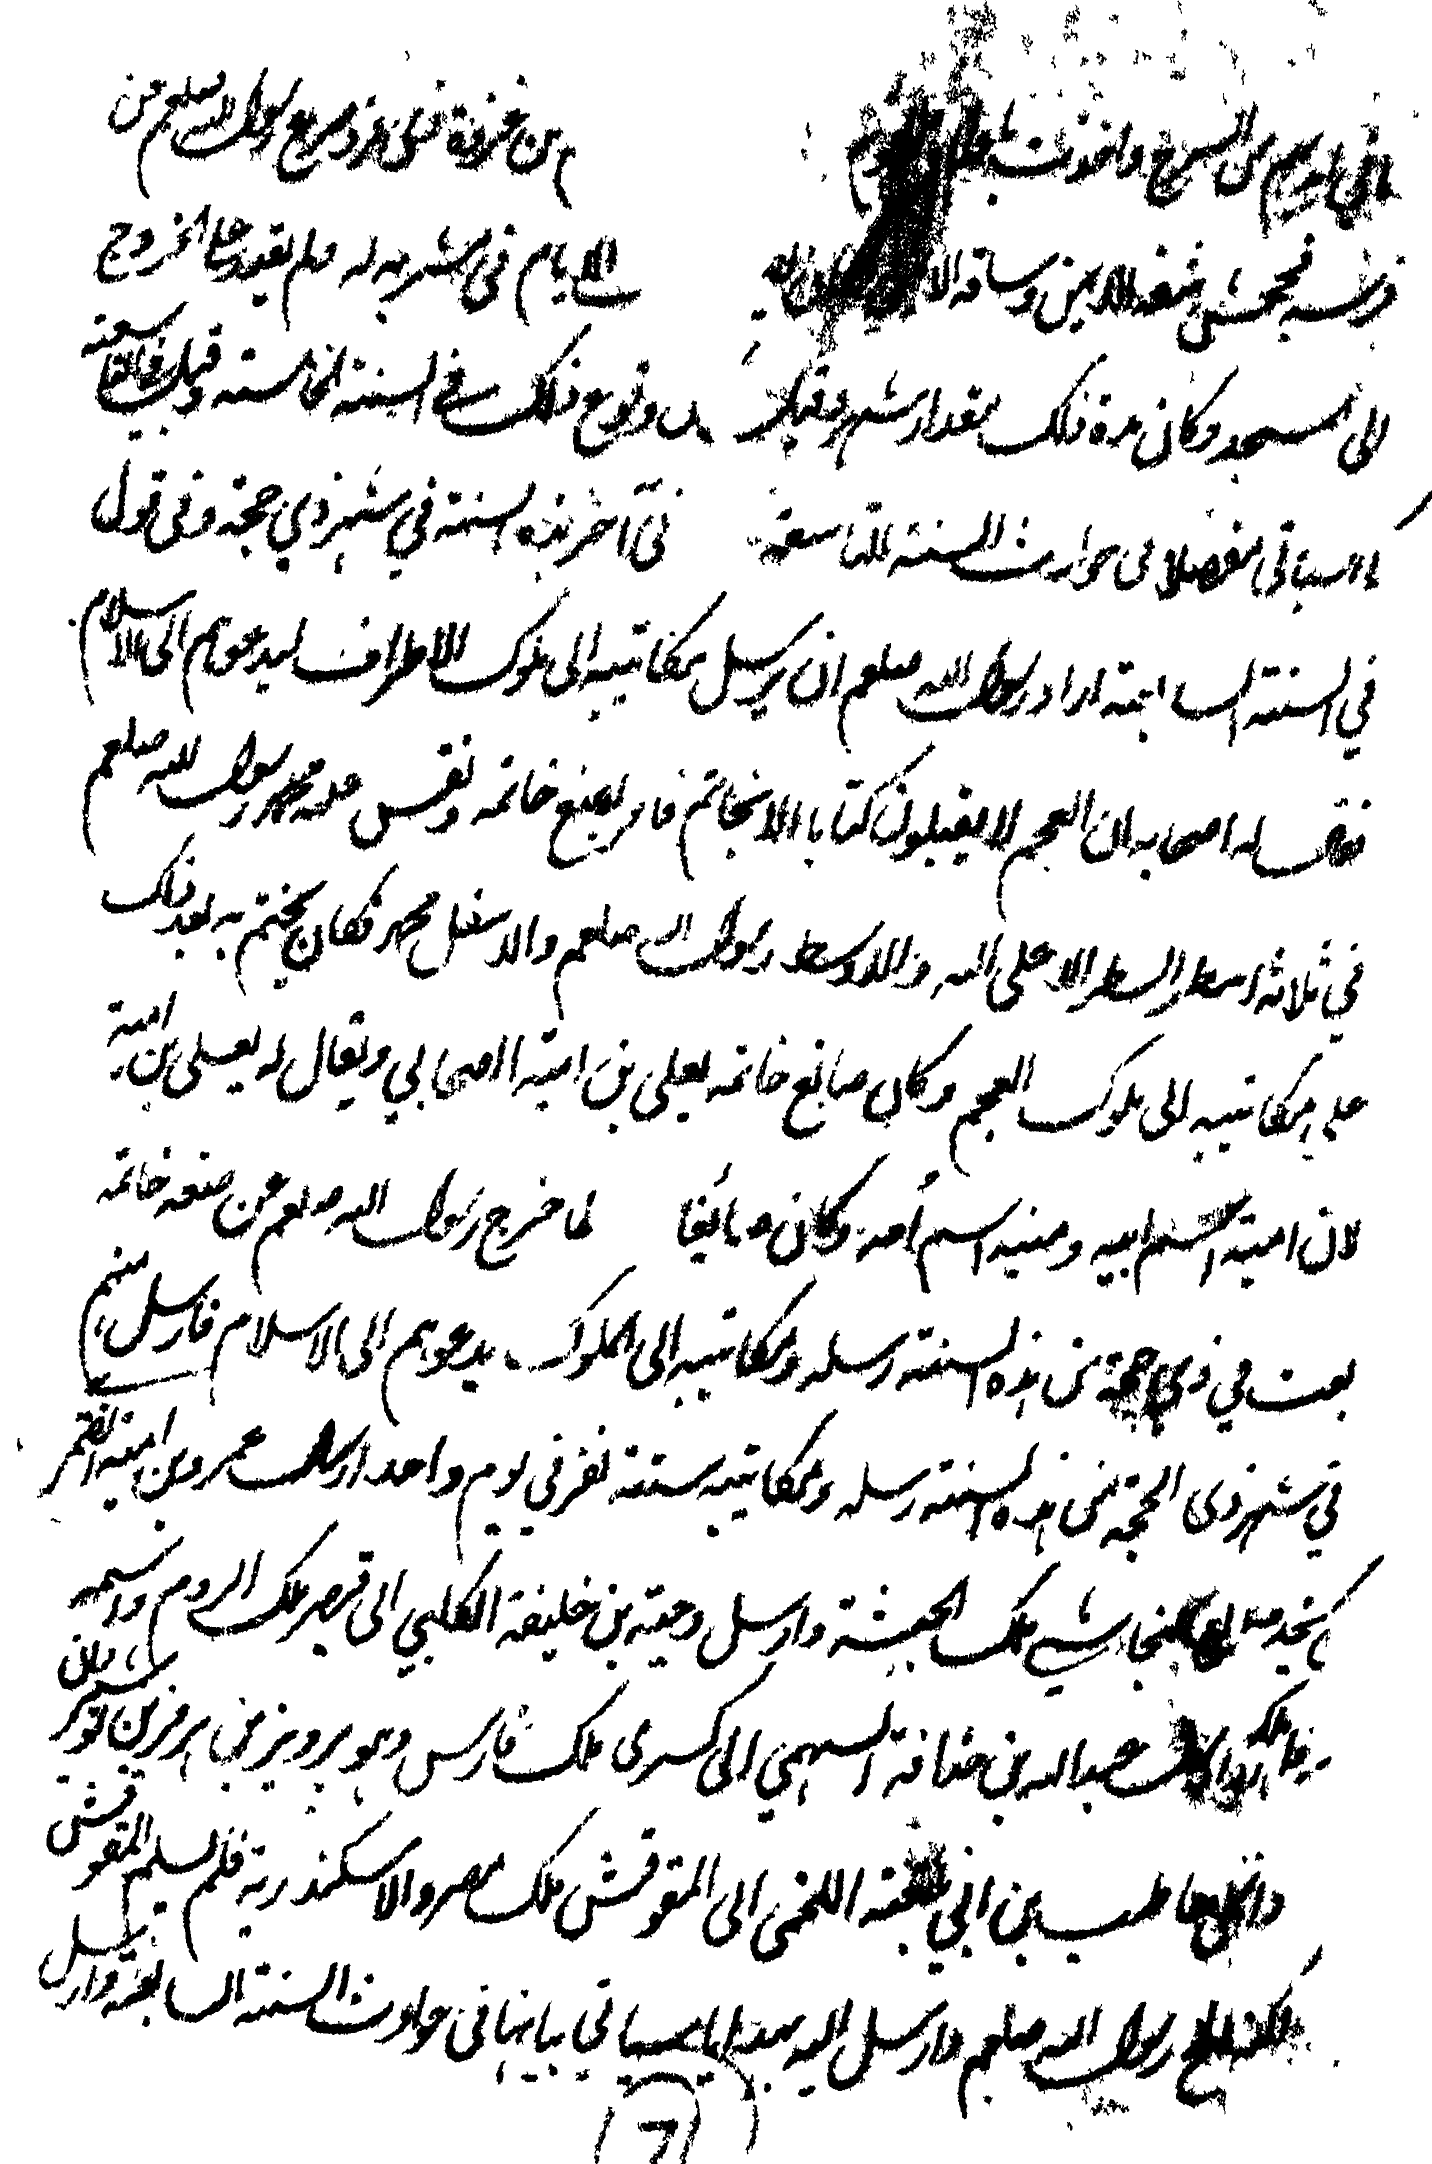 من غزوة صلى الله رسول الله صلعم عن
فرسه فجحش شقه الايمن وساقه الايام في مشربه له ولم يقدر على الخروج
الى المسجد وكان مدة ذلك مقدار شهر وقيل وقوع ذلك في السنة الخامسة وقيل في التاسعة
كما سياتي مفصلا في حوادث السنة التاسعة في آخر هذه السنة في شهر ذي حجة وفي قول
في السنة السابعة اراد رسول الله صلعم ان يرسل مكاتيبه الى ملوك الاطراف ليدعوهم الى الاسلام
فقال له اصحابه ان العجم لا يقبلون كتابا الا بخاتم فامر بصنع خاتمه ونقش عليه محمد رسول الله صلعم
في ثلاثة اسطر السطر الاعلى الله والاوسط رسول الله صلعم والاسفل محمد فكان يختم به بعد ذلك
على مكاتيبه الى ملوك العجم وكان صانع خاتمه يعلى بن امية الصحابي ويقال له يعلى بن امية
لان امية اسم ابيه ومنيه اسم أمه وكان صائغا لما خرج رسول الله صلعم عن صنعة خاتمه
بعث في ذي حجة من هذه السنة رسله ومكاتيبه الى الملوك يدعوهم الى الاسلام فارسل منهم
في شهر ذي الحجة من هذه السنة رسله ومكاتيبه ستة نفر في يوم واحد ارسل عمرو بن امية الضمري
النجاشي ملك الحبشة وارسل دحية بن خليفة الكلبي الى قيصر ملك الروم واسمه
عبد الله بن حذافة السهمي الى كسرى ملك فارس وهو برويز بن هرمز بن
حاطب بن ابي بلتعة اللخمي الى المقوقس ملك مصر والاسكندرية فلم يسلم المقوقس
رسول الله صلعم وارسل اليه بهدايا سياتي بيانها في حوادث السنة السابعة وارسل